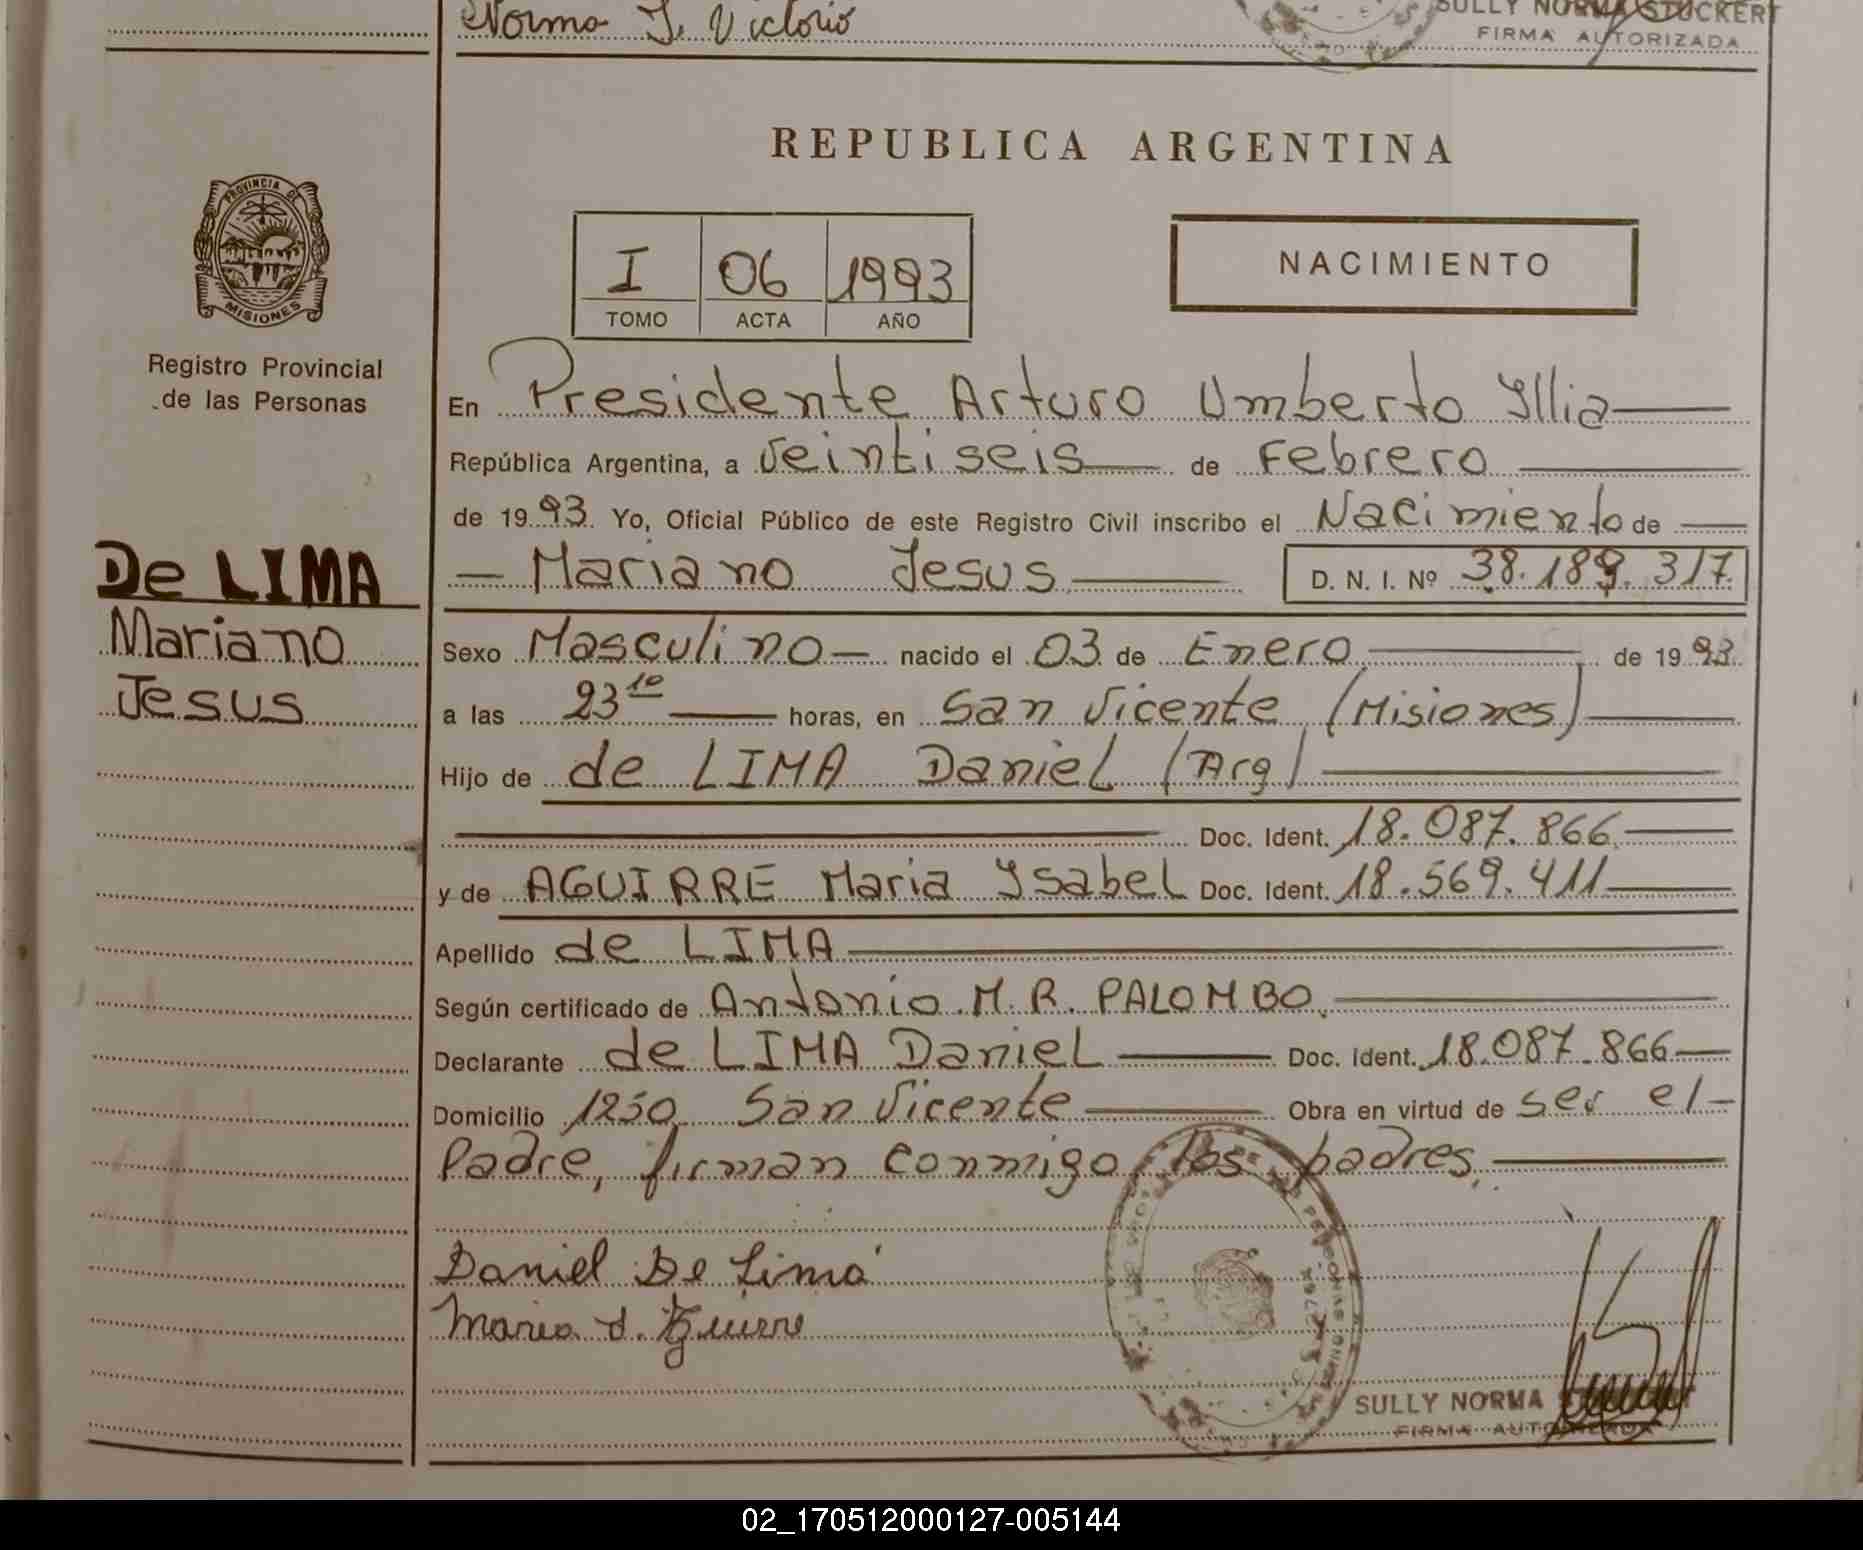 Norma I. Victorio
SULLY NORMA STUCKERT
FIRMA AUTORIZADA
REPUBLICA ARGENTINA
PROVINCIA DE
MISIONES
Registro Provincial
de las Personas
I 06 1993
TOMO ACTA AÑO
NACIMIENTO
En Presidente Arturo Umberto Yllia
República Argentina, a veintiseis de Febrero
de 1993. Yo, Oficial Público de este Registro Civil inscribo el Nacimiento de
De LIMA
Mariano
Jesus
Mariano Jesus D. N. I. Nº 38.189.317
Sexo Masculino nacido el 03 de Enero de 1993
a las 23 10 horas, en San Vicente (Misiones)
Hijo de de LIMA Daniel (Arg)
Doc. Ident. 18.087.866
y de AGUIRRE Maria Ysabel Doc. Ident. 18.569.411
Apellido de LIMA
Según certificado de Antonio M. R. PALOMBO
Declarante de LIMA Daniel Doc. Ident. 18.087.866
Domicilio 1250 San Vicente Obra en virtud de ser el
Padre, firman conmigo los padres.
Daniel De Lima
Maria I. Aguirre
SULLY NORMA
FIRMA AUTORIZADA
02_170512000127-005144